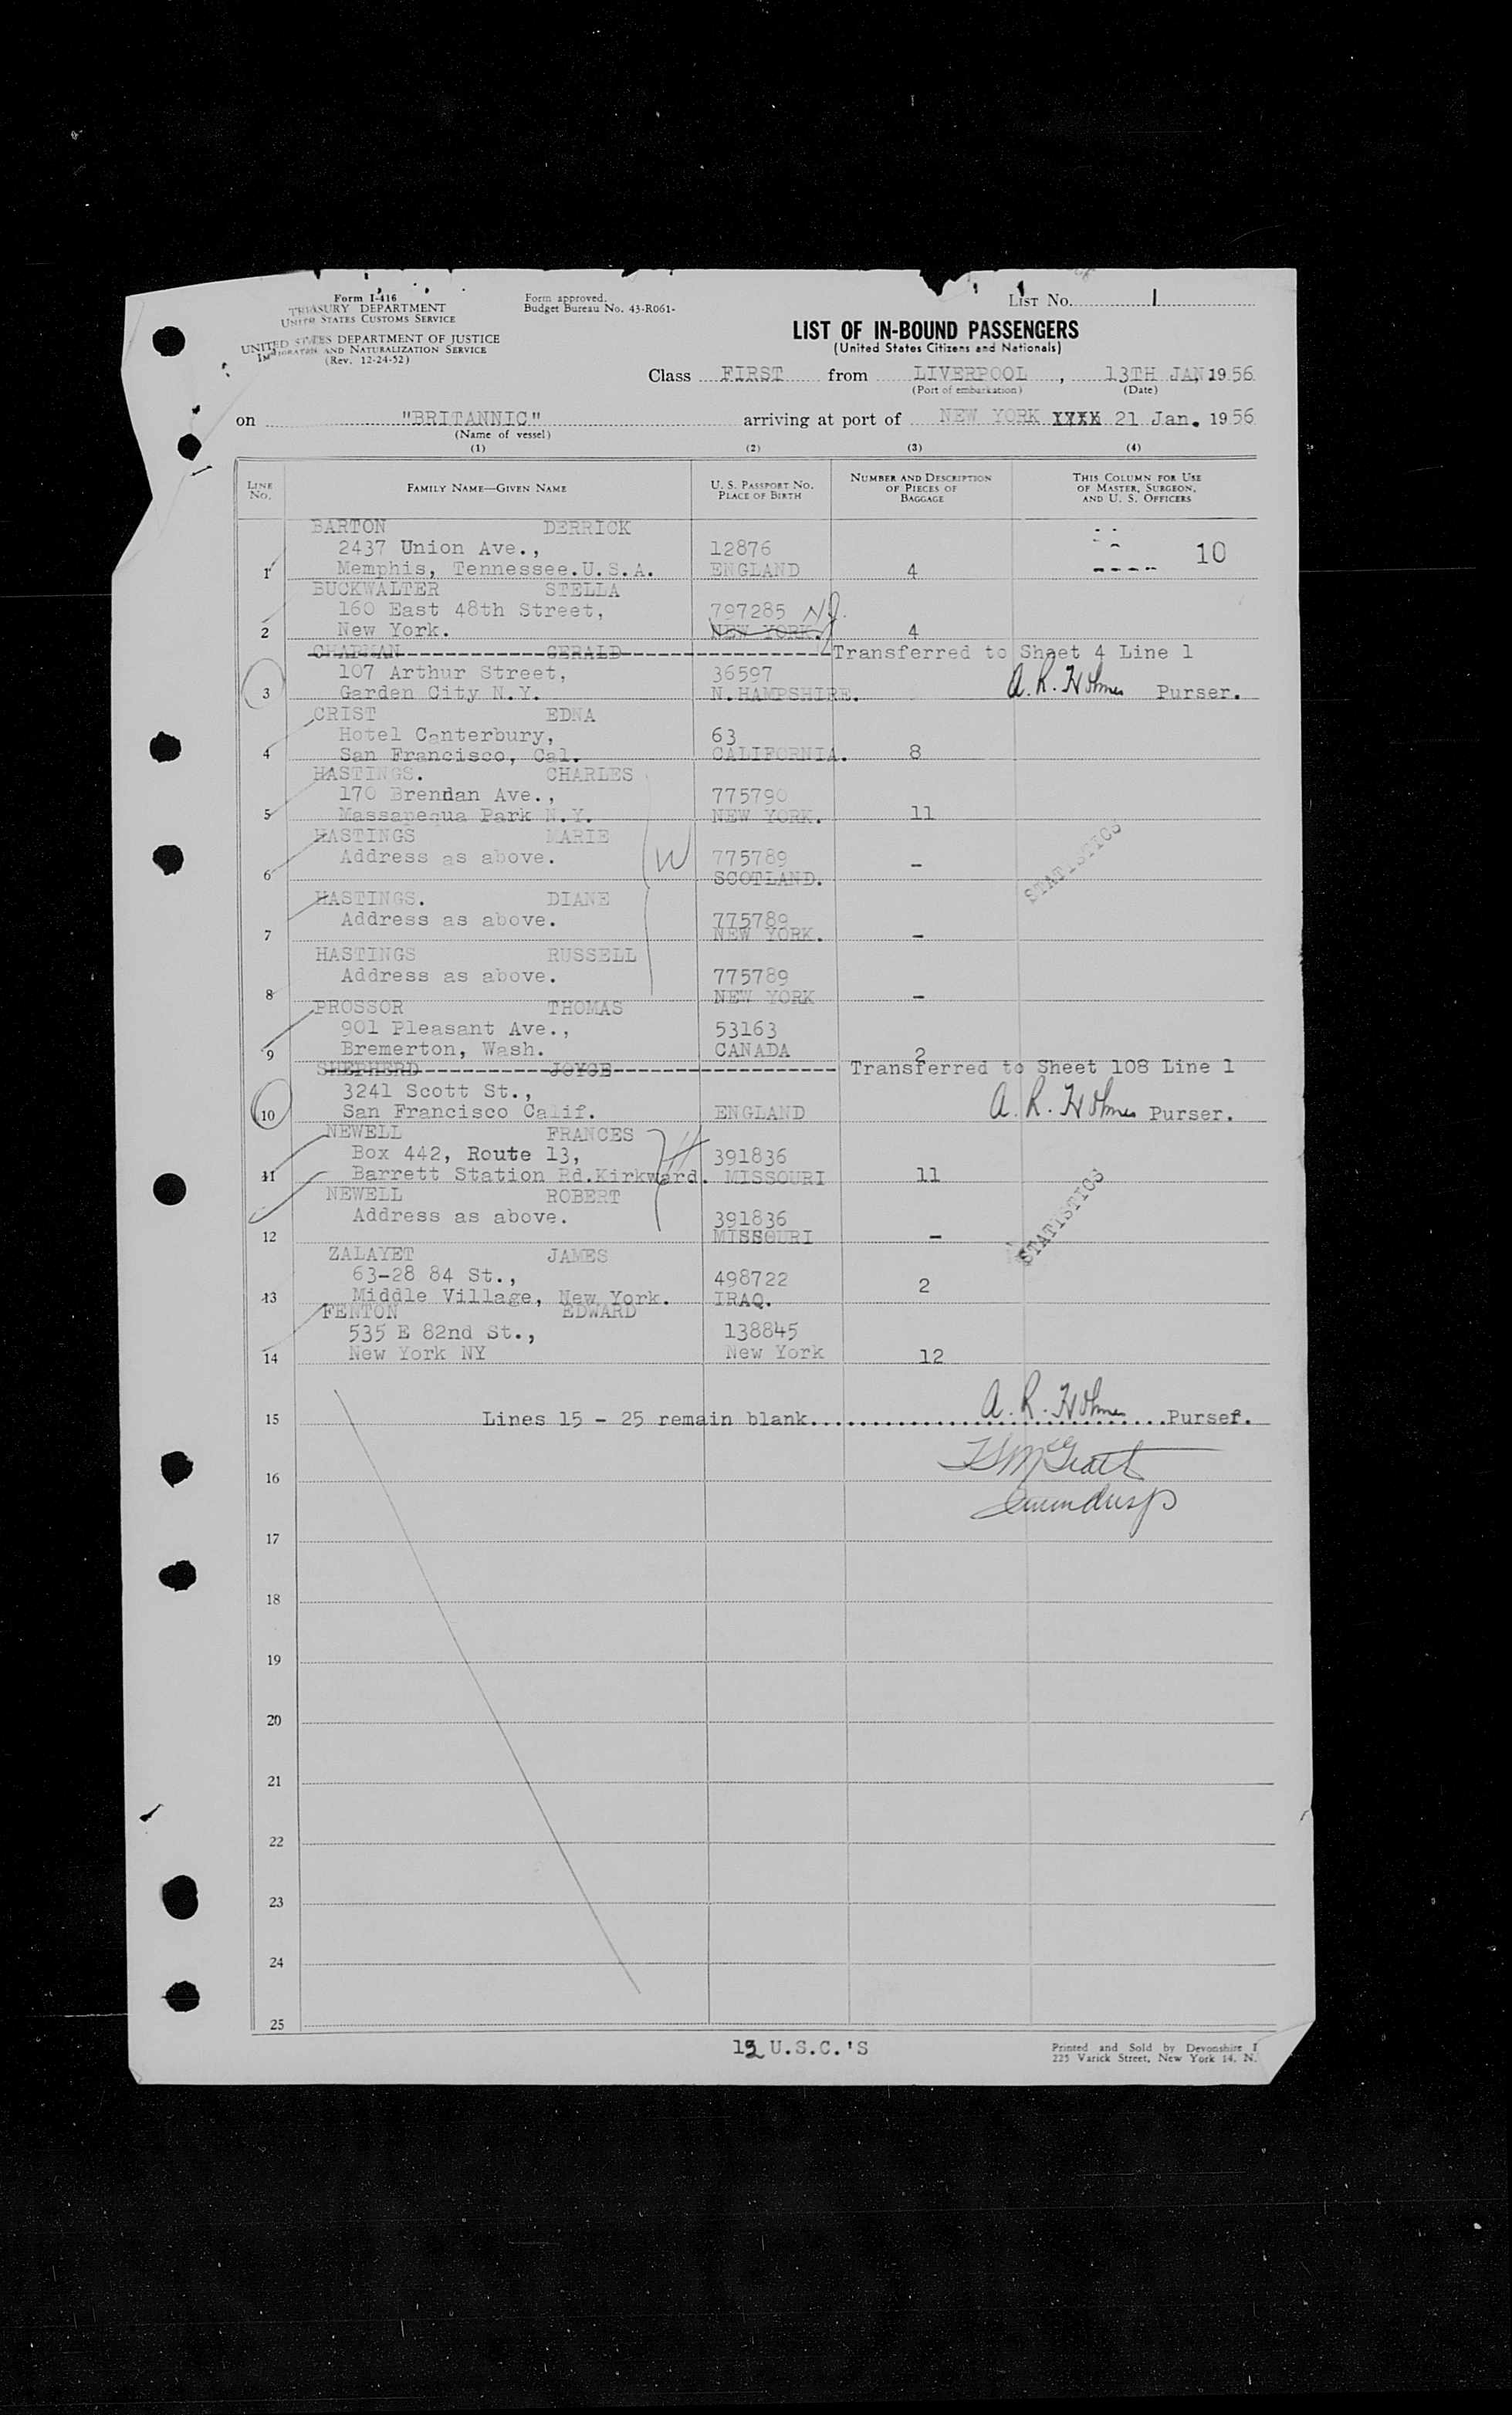 Form I-416
TREASURY DEPARTMENT
UNITED STATES CUSTOMS SERVICE
UNITED STATES DEPARTMENT OF JUSTICE
IMMIGRATION AND NATURALIZATION SERVICE
(Rev. 12-24-52)
Form approved.
Budget Bureau No. 43-R061-
LIST No. 1
LIST OF IN-BOUND PASSENGERS
(United States Citizens and Nationals)
Class FIRST from LIVERPOOL, 13TH JAN, 1956
(Port of embarkation) (Date)
on "BRITANNIC" arriving at port of NEW YORK XXXX 21 Jan. 1956
(Name of vessel)
(1) (2) (3) (4)
LINE No. FAMILY NAME—GIVEN NAME U. S. PASSPORT No. PLACE OF BIRTH NUMBER AND DESCRIPTION OF PIECES OF BAGGAGE THIS COLUMN FOR USE OF MASTER, SURGEON, AND U. S. OFFICERS
BARTON DERRICK
2437 Union Ave., 12876 10
1 Memphis, Tennessee.U.S.A. ENGLAND 4
BUCKWALTER STELLA
160 East 48th Street, 797285 NJ.
2 New York. NEW YORK. 4
CHAPMAN GERALD Transferred to Sheet 4 Line 1
107 Arthur Street, 36597
3 Garden City N.Y. N.HAMPSHIRE. A. R. Holmes Purser.
CRIST EDNA
Hotel Canterbury, 63
4 San Francisco, Cal. CALIFORNIA. 8
HASTINGS. CHARLES
170 Brendan Ave., 775790
5 Massapequa Park N.Y. NEW YORK. 11
HASTINGS MARIE
Address as above. W 775789 -
6 SCOTLAND.
STATISTICS
HASTINGS. DIANE
Address as above. 775789
7 NEW YORK. -
HASTINGS RUSSELL
Address as above. 775789
8 NEW YORK -
PROSSOR THOMAS
901 Pleasant Ave., 53163
9 Bremerton, Wash. CANADA 2
SHEPHERD JOYCE Transferred to Sheet 108 Line 1
3241 Scott St.,
10 San Francisco Calif. ENGLAND A. R. Holmes Purser.
NEWELL FRANCES
Box 442, Route 13, 391836
11 Barrett Station Rd.Kirkward. MISSOURI 11
NEWELL ROBERT
Address as above. 391836
12 MISSOURI -
STATISTICS
ZALAYET JAMES
63-28 84 St., 498722 2
13 Middle Village, New York. IRAQ.
FENTON EDWARD
535 E 82nd St., 138845
14 New York NY New York 12
15 Lines 15 - 25 remain blank. A. R. Holmes Purser.
16
17
18
19
20
21
22
23
24
25
12 U.S.C.'S
Printed and Sold by Devonshire
225 Varick Street, New York 14, N.